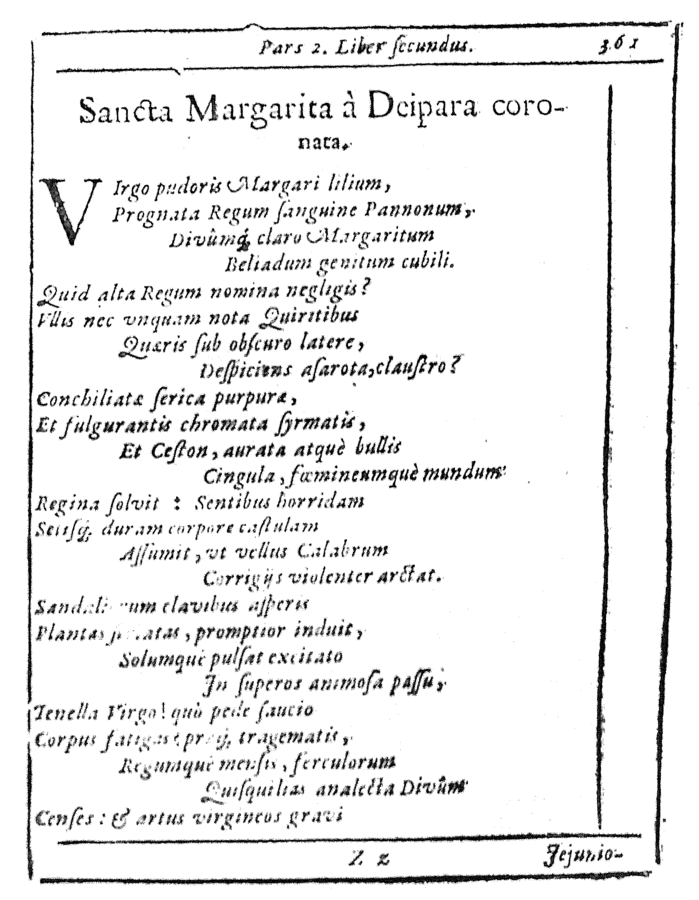 Pars 2. Liber ſecundus. 361
Sancta Margarita à Deipara coro-
nata.
VIrgo pudoris Margari lilium,
Prognata Regum ſanguine Pannonum,
Divûmq́; claro Margaritum
Beliadum genitum cubili.
Quid alta Regum nomina negligis?
Vllis nec vnquam nota Quiritibus
Quæris ſub obſcuro latere,
Deſpiciens aſarota, clauſtro?
Conchiliatæ ſerica purpuræ,
Et fulgurantis chromata ſyrmatis,
Et Ceſton, aurata atquè bullis
Cingula, fœmineumquè mundum
Regina ſolvit : Sentibus horridam
Setiſq́; duram corpore caſtulam
Aſſumit, vt vellus Calabrum
Corrigijs violenter arctat.
clavibus aſperis
Plantas, promptior induit,
Solumquè pulſat excitato
In ſuperos animoſa paſſu,
Tenella Virgo! quò pede ſaucio
Corpus tragematis,
Regumquè menſis, ferculorum
Quiſquilias analecta Divûm
Cenſes : & artus virgineos gravi
Z z Jejunio-